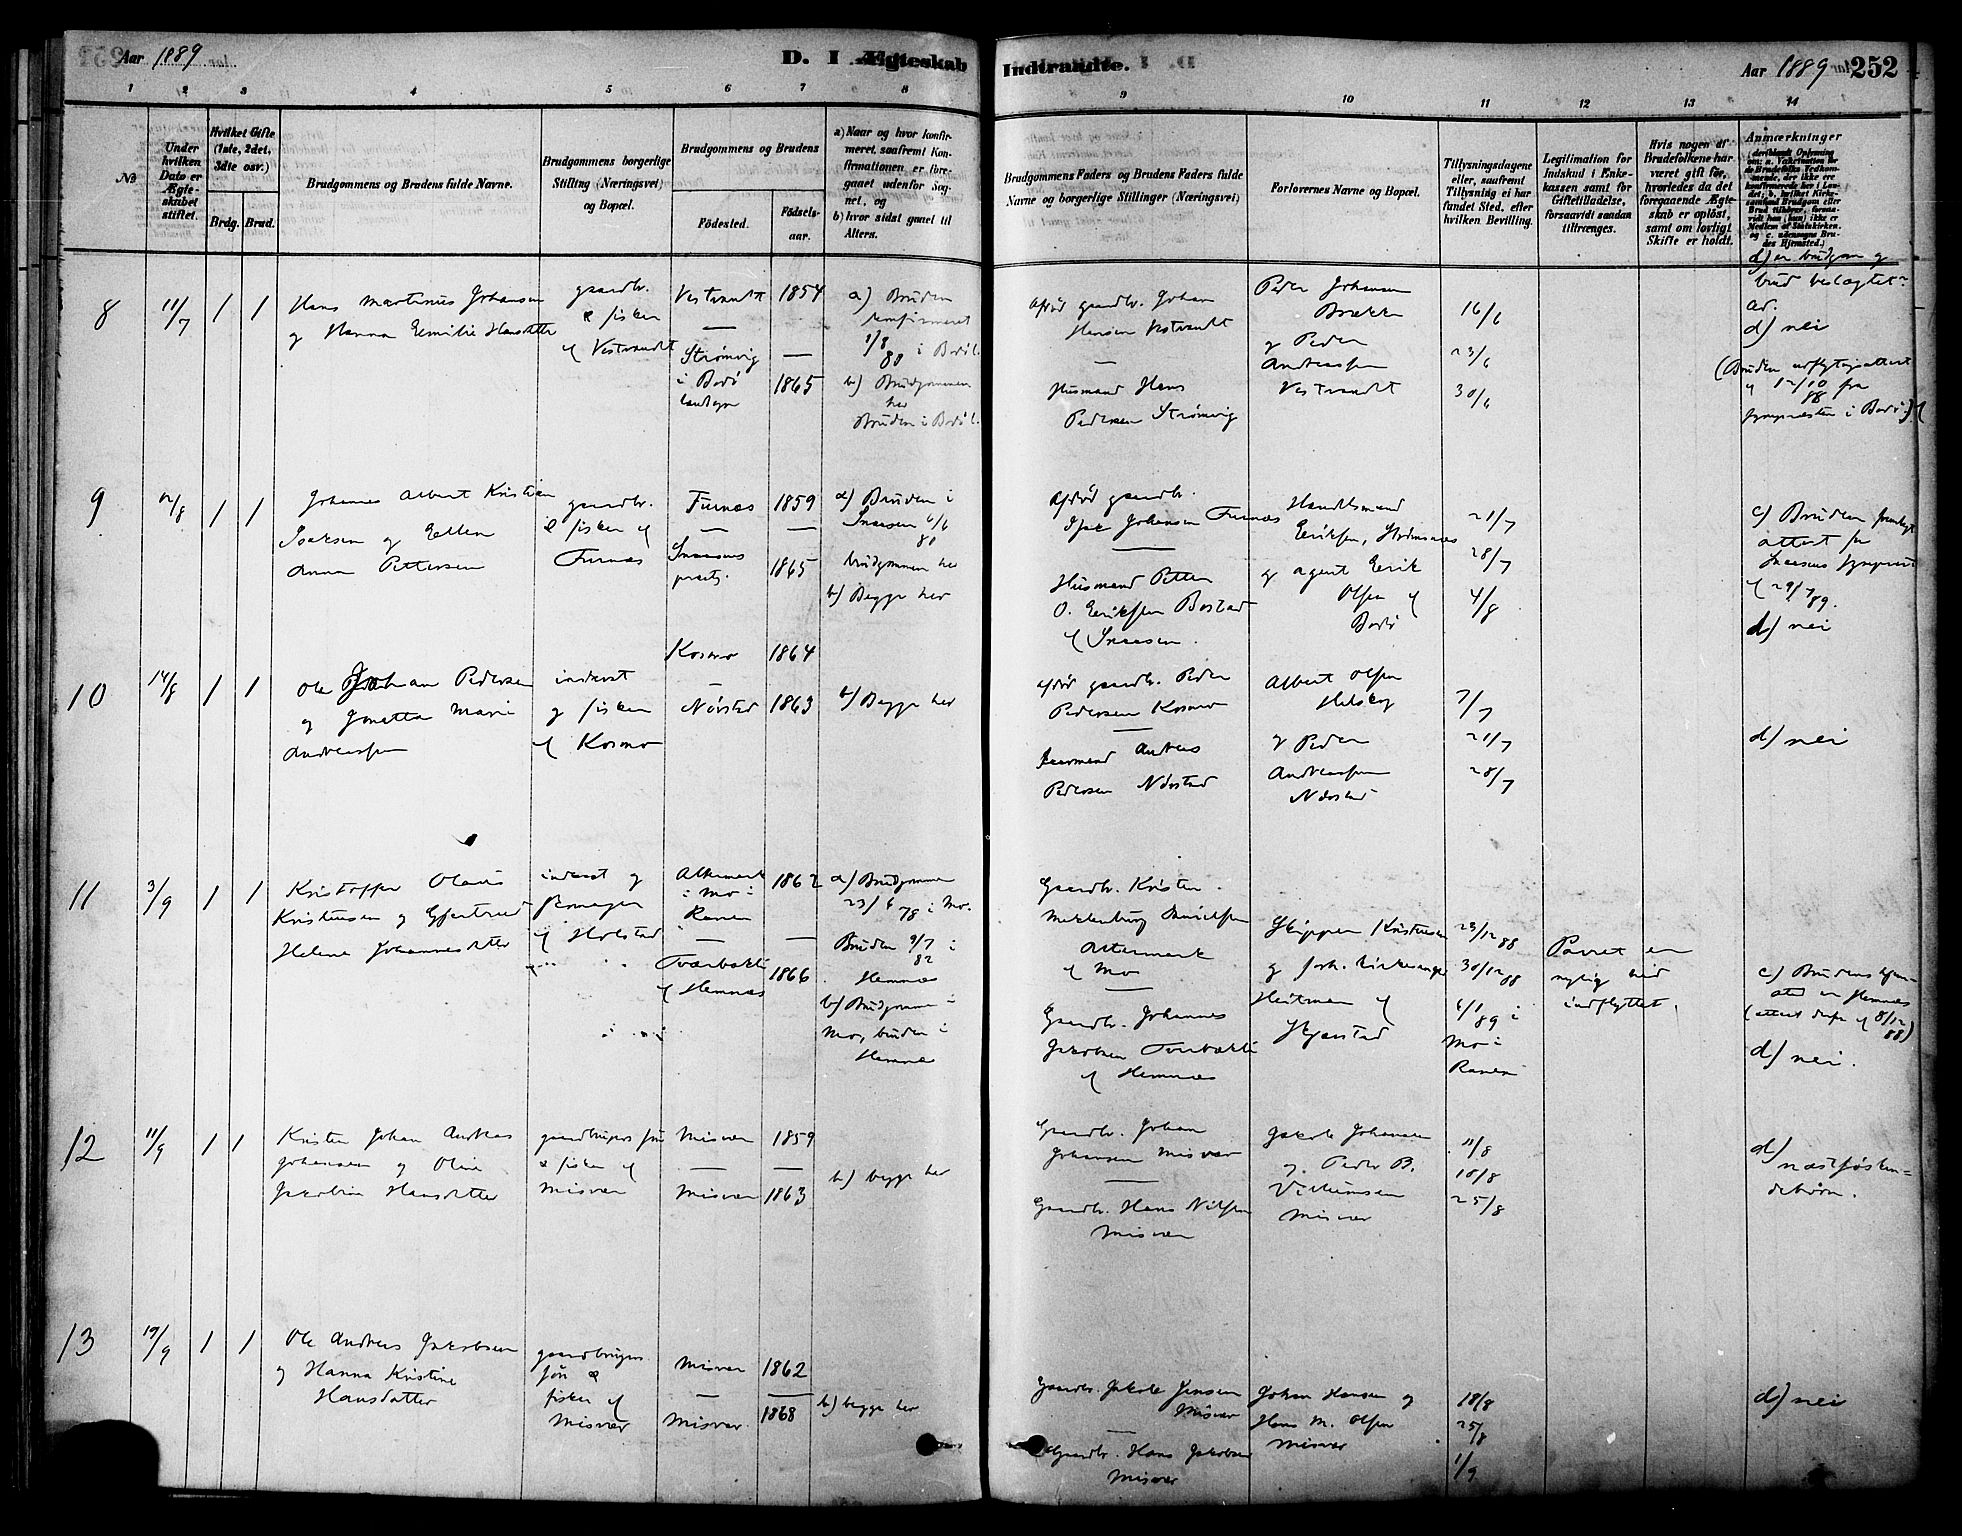 Aar 1889
D. I. Ægteskab
1 2 3 4 5 6 7 8
No
Under hvilken Dato er Ægteskabet stiftet.
Hvilket Gifte (1ste, 2det, 3die osv.)
Brdg. Brud.
Brudgommens og Brudens fulde Navne.
Brudgommens borgerlige Stilling (Næringsvei) og Bopæl.
Brudgommens og Brudens
Fødested.
Fødselsaar.
a) Naar og hvor konfirmeret, saafremt Konfirmationen er foregaaet udenfor Sognet, og
b) hvor sidst gaaet til Alters.
Indtraadte.
Aar 1889
252
9 10 11 12 13 14
Brudgommens Faders og Brudens Faders fulde Navne og borgerlige Stillinger (Næringsvei)
Forlovernes Navne og Bopæl.
Tillysningsdagene eller, saafremt Tillysning ei har fundet Sted, efter hvilken Bevilling.
Legitimation for Indskud i Enkekassen samt for Giftetilladelse, forsaavidt saadan tiltrænges.
Hvis nogen af Brudefolkene har været gift før, hvorledes da det foregaaende Ægteskab er opløst, samt om lovligt Skifte er holdt.
Anmærkninger
8 11/7 1 1
Hans Martinus Johansen
og Hanna Emilie Hansdatter
gaardbr.
& fisker
af Vestvandt
Vestvandt 1854
Strømvig
i Bodø
landsogn 1865
a) Bruden
konfirmeret
i Bodø l.
b) Brudgommen
her
Bruden i Bodø l.
Afdød gaardbr. Johan
Hansen Vestvandt
Husmand Hans
Pedersen Strømvig
Peder Johansen
Brække
og Peder
Andreassen
Vestvandt
16/6
23/6
30/6
d) er brudgom og
brud beslægtet
d) nei
9 1 1
Johannes Albert Kristian
Isaksen og Ellen
Anna Pettersen
gaardbr.
& fisker af
Furnæs
Furnæs 1859
1865
a) Bruden i
brudgommen her
b) Begge her
Afdød gaardbr.
Isak Johansen Furnæs
Husmand Petter
O. Eriksen Bostad
Handelsmand
Eriksen,
og agent Erik
Olsen af
Bodø
21/7
28/7
4/8
c) Bruden
attest fra
29/7 89.
d) nei
10 14/8 1 1
Ole Johan Pedersen
og Jonetta Marie
Andreassen
inderst
og fisker
af Kosmo
Kosmo 1864
Nørstad 1863
b) Begge her
Afdød gaardbr. Peder
Pedersen Kosmo
Andreas
Pedersen Nørstad
Albert Olsen
og Peder
Andreassen
Nørstad
7/7
21/7
28/7
d) nei
11 3/9 1 1
Kristoffer Olaus
Kristensen og Gjertrud
Helene Johannesdatter
inderst og
af Holstad
i Mo i
Ranen 1862
Tverbakli
af Hemnæs 1866
a) Brudgommen
23/6 78 i Mo.
Bruden 9/7 82 i
Hemnæs
b) Brudgommen i
Mo, bruden i
Hemnæs
Gaardbr. Kristen
Altermark
af Mo
Gaardbr. Johannes
Jakobsen Tverbakli
af Hemnæs
Skipper Kristensen
og forh. kirkesanger
Heitman af
Skjerstad
23/12 88
30/12 88
6/1 89 i
Mo i
Ranen
Parret er
nylig hid
indflyttet.
c) Brudens hjemsted
er Hemnæs
8/12 88)
d) nei.
12 11/9 1 1
Kristen Johan Andreas
Johansen og Oline
Jakobine Hansdatter
gaardbrugers søn
& fisker af
Misvær
Misvær 1859
Misvær 1863
b) begge her
Gaardbr. Johan
Johansen Misvær
Gaardbr. Hans Nilsen
Misvær
Jakob Johansen
og Peder B.
Villumsen
Misvær
11/8
18/8
25/8
d)
næstsøskendebørn.
13 19/9 1 1
Ole Andreas Jakobsen
og Hanna Kristine
Hansdatter
gaardbrugers
søn &
fisker af
Misvær
Misvær 1862
Misvær 1868
b) begge her
Gaardbr. Jakob Jensen
Misvær
Gaardbr. Hans Jakobsen
Misvær
Johan Hansen og
Hans M. Olsen
Misvær
18/8
25/8
1/9
d) nei